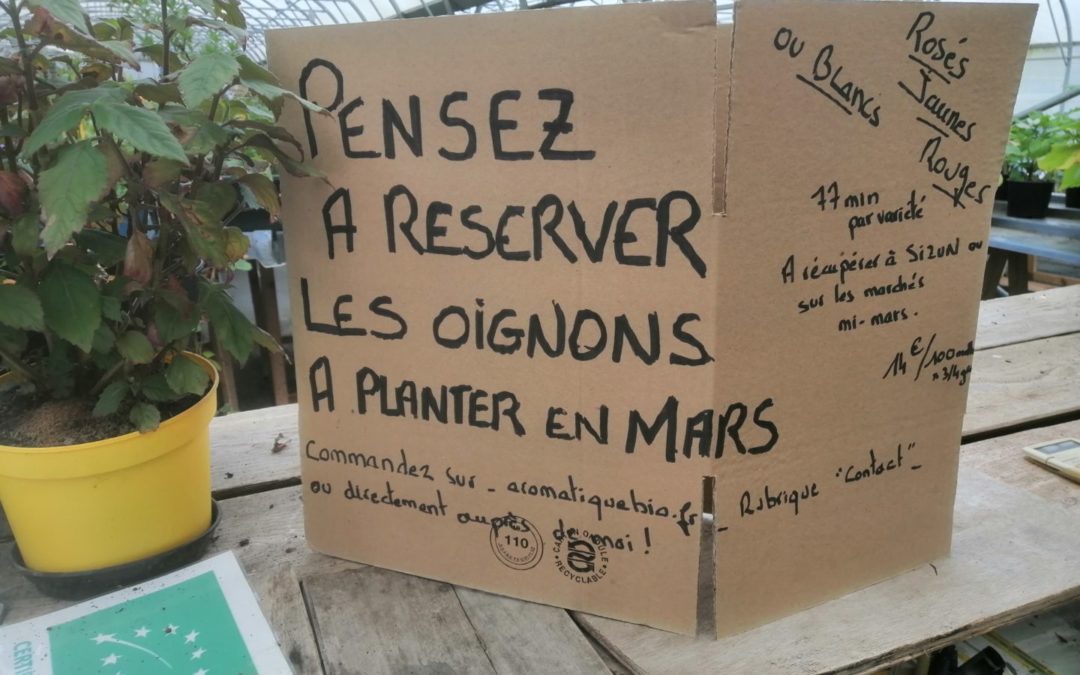 PENSEZ
A RESERVER
LES OIGNONS
A PLANTER EN MARS
Commandez sur - aromatiquebio.fr - Rubrique "Contact" -
ou directement auprès de moi !
110
RECYCLABLE
ou Blancs
Rosés
Jaunes
Rouges
par variété
A récupérer à SIZUN ou
sur les marchés
mi-mars.
14€/100
CERTI